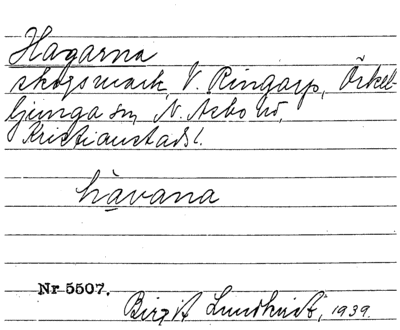 Hagarna
skogsmark, V. Ringarp, Örkel-
ljunga sn, N. Åsbo hd,
Kristianstads l.
hàvana
Nr 5507.
Birgit Lundkvist, 1939.